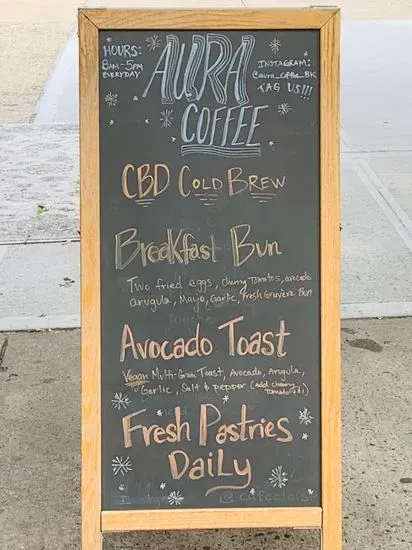 HOURS:
8AM-5PM
EVERYDAY
AURA
COFFEE
INSTAGRAM:
@aura_coffee_BK
TAG US!!!
CBD COLD BREW
Breakfast Bun
Two fried eggs, cherry tomatos, avocado
arugula, Mayo, Garlic, Fresh Gruyère Bun
AVOCADO TOAST
Vegan Multi-Grain Toast, Avocado, Arugula,
Garlic, Salt & pepper (Add cherry
Tomato
FRESH PASTRIES
DAILY
@cafeelois